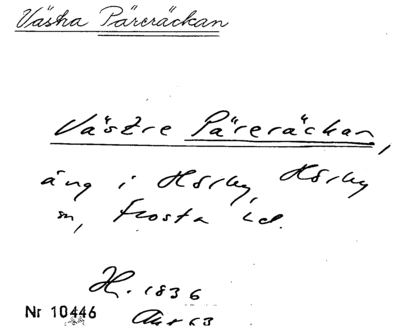 Västra Päreräckan
Västre Päreräckan,
äng i Hörby, Hörby
sn, Frosta hd.
H. 1836
Akt 63
Nr 10446